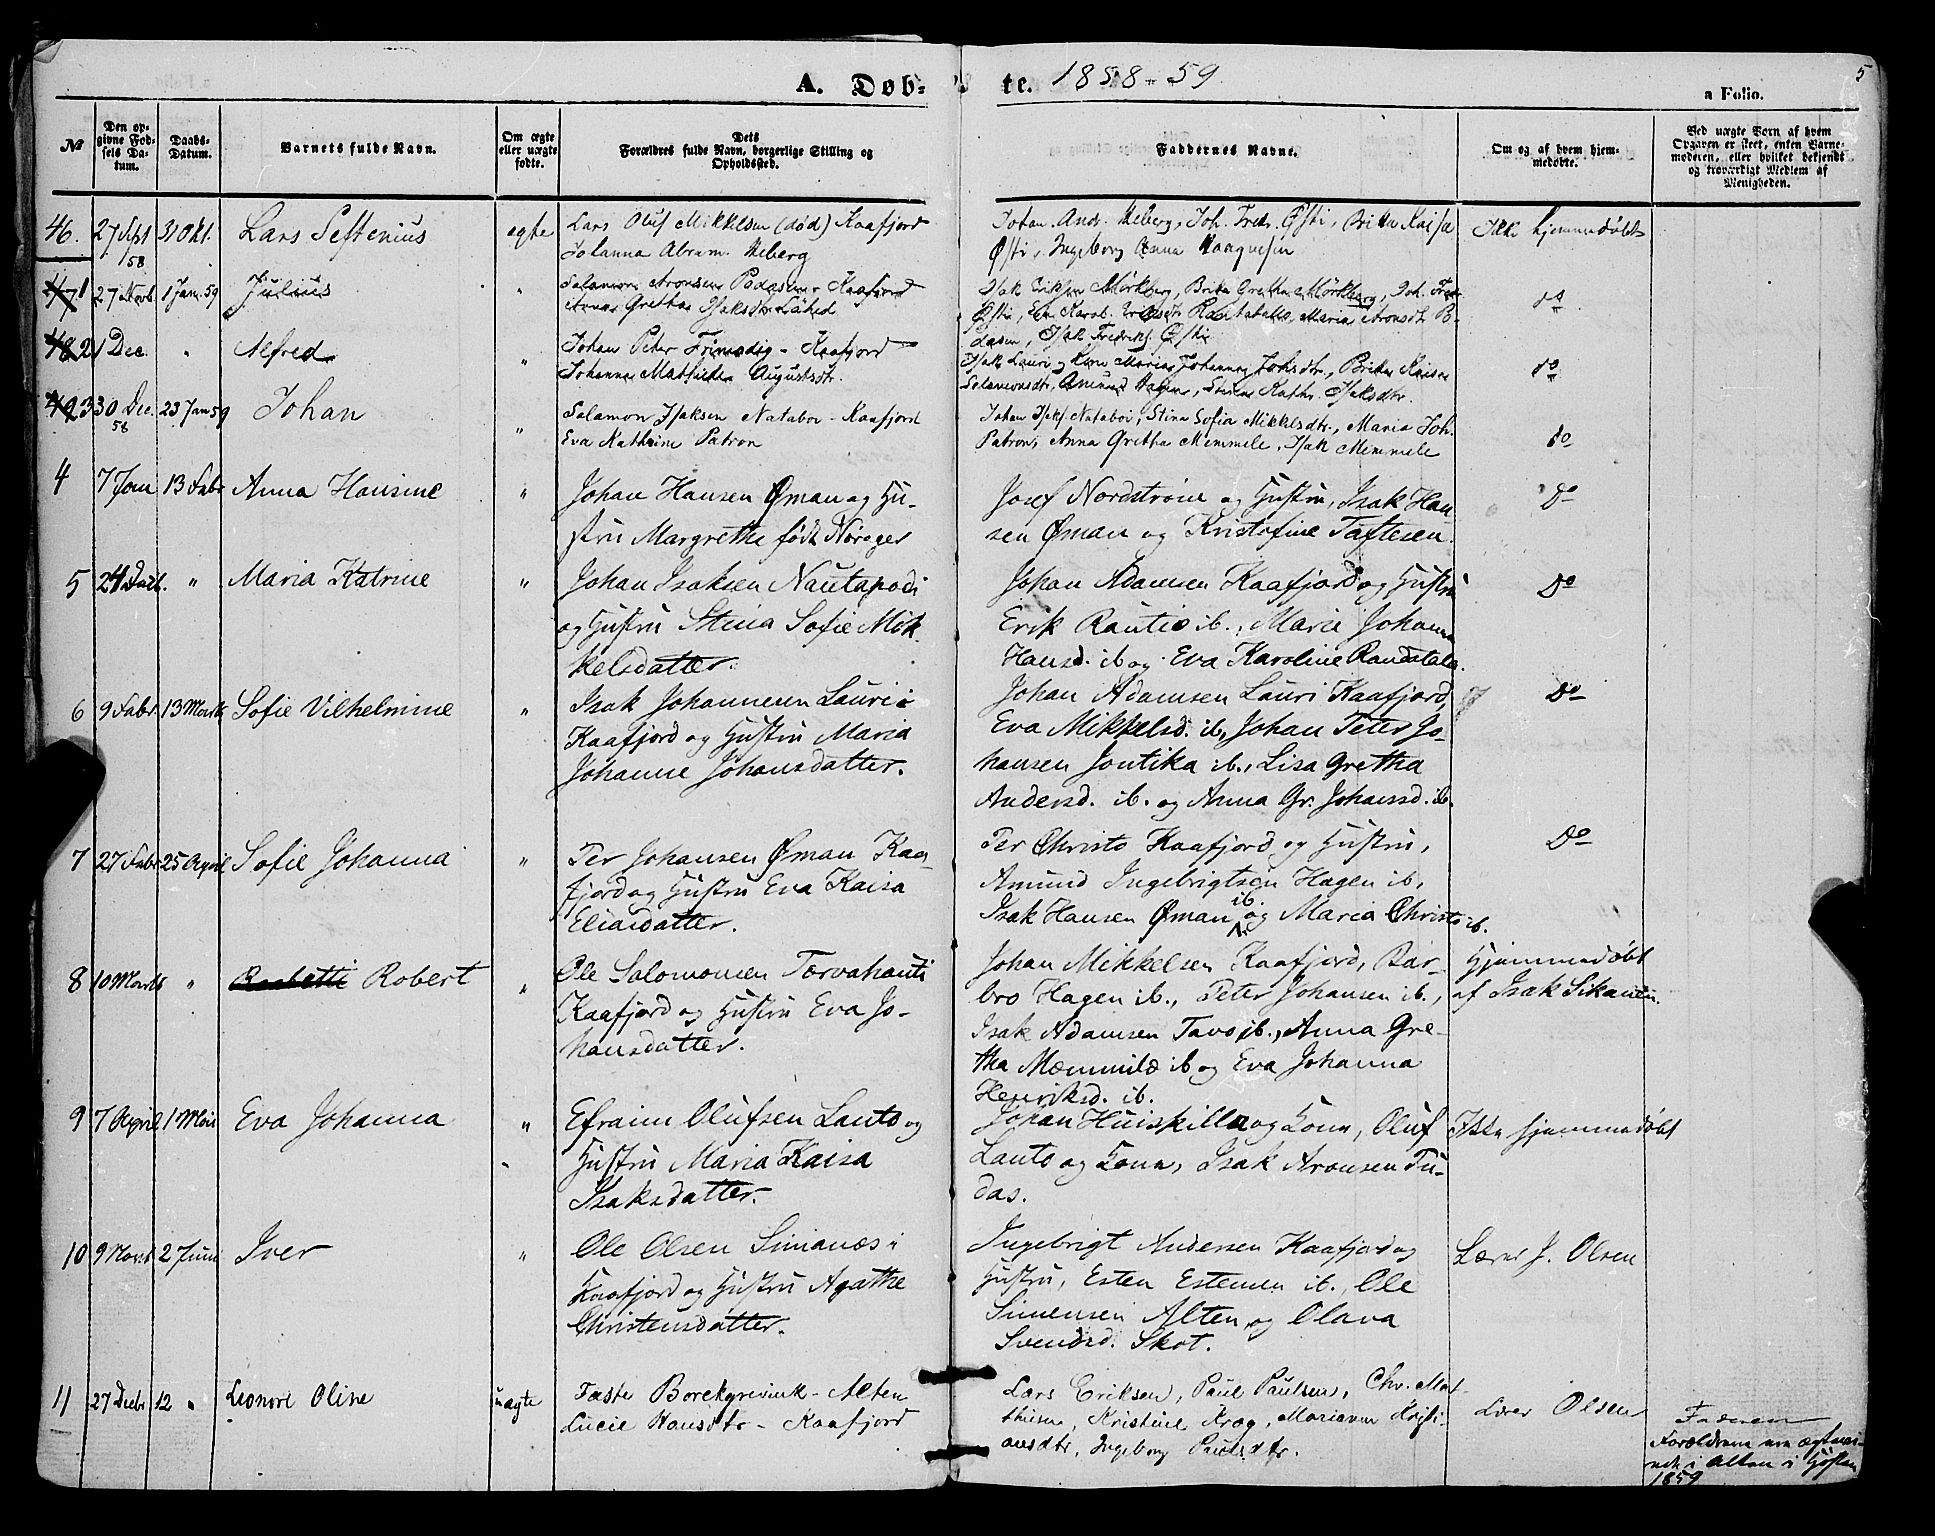 A. Døb- te. 1858-59. 5
a Folio.
№
Den opgivne Fødsels Datum.
Daabs-Datum.
Barnets fulde Navn.
Om ægte eller uægte fødte.
Dets Forældres fulde Navn, borgerlige Stilling og Opholdssted.
Faddernes Navne.
Om og af hvem hjemmedøbte.
Ved uægte Børn af hvem Opgaven er skeet, enten Barnemoderen, eller hvilket bekjendt og troværdigt Medlem af Menigheden.
46. 27 Sept 58 31 Okt. Lars Seftenius ægte
Lars Oluf Mikkelsen (død) Kaafjord
Johanna Abram. Heberg
Johan And. Heberg, Joh. Fredr. Østi, Brita Kaisa
Østi, Ingeborg Anna Haagensen
Ikke hjemmedøbt
1 27 Novb. 1 Jan. 59 Julius "
Salamon Aronsen Kaafjord
Anna Gretha Isaksdtr
Isak Eriksen Mörkberg, Brita Gretha Mörkberg, Joh. Fredr.
Østi, Eva Karol. Eriksdtr Rantatalo, Maria Aronsdt
Isak Fredriks. Østi
do
2 1 Dec. " Alfred "
Johan Peter Kaafjord
Johanna Mathilda Augustsdtr.
Isak Lauri og Kone Maria Johanna Johsdtr., Brita Kaisa
Salamonsdtr, Amund Hagen, Stina Kath. Isaksdtr.
do
3 30 Dec. 58 23 Jan 59 Johan "
Salamon Isaksen Natabov - Kaafjord
Eva Kathrine Patron
Johan Isaks. Nataboi, Stina Sofia Mikkelsdtr., Maria Joh.
Patron, Anna Gretha Memmele, Isak Memmele
do
4 7 Jan 13 Febr Anna Hansine "
Johan Hansen Øman og Hu-
stru Margrethe født Noreger
Josef Nordstrøm og Hustru, Isak Han-
sen Øman og Kristofine Taftesen.
Do
5 24 " Maria Katrine "
Johan Isaksen Nautapodi
og Hustru Stina Sofie Mik-
kelsdatter.
Johan Adamsen Kaafjord og Hustru
Erik Rautio ib., Marie Johanna
Hansd. ib og Eva Karoline Randatala.
Do
6 9 Febr 13 Marts Sofie Vilhelmine "
Isak Johannesen Lauri i
Kaafjord og Hustru Maria
Johanne Johansdatter.
Johan Adamsen Lauri Kaafjord,
Eva Mikkelsd. ib, Johan Peter Jo-
hansen Jontika ib., Lisa Gretha
Andersd. ib. og Anna Gr. Johansd. ib.
Do
7 27 Febr 25 April Sofie Johanna "
Per Johansen Øman Kaa-
fjord og Hustru Eva Kaisa
Eliasdatter.
Per Christo Kaafjord og Hustru,
Amund Ingebrigtsen Hagen ib,
Isak Hansen Øman ib. og Maria Christo ib.
Do
8 10 Marts " Robert "
Ole Salomonsen Tærvahauti
Kaafjord og Hustru Eva Jo-
hansdatter.
Johan Mikkelsen Kaafjord, Bar-
bro Hagen ib., Peter Johansen ib.,
Isak Adamsen Tavo ib., Anna Gre-
tha Mæmmilæ ib og Eva Johanna
Henriksd. ib.
Hjemmedøbt
af Isak Sikanen.
9 7 April 1 Mai Eva Johanna "
Efraim Olufsen Lauto og
Hustru Maria Kaisa
Isaksdatter.
Johan Huiskilla og Kone, Oluf
Lauto og Kone, Isak Aronsen Pu-
das.
Ikke hjemmedøbt
10 9 Marts 2 Juni Iver "
Ole Olsen Simanæs i
Kaafjord og Hustru Agathe
Christensdatter.
Ingebrigt Andersen Kaafjord og
Hustru, Esten Estensen ib., Ole
Simensen Alten og Olava
Svendsd. Skot.
Lærer J. Olsen
11 27 Decbr 12 " Leonore Oline uægte
Taste Borchgrevink - Alten
Lucie Hansdtr - Kaafjord
Lars Eriksen, Paul Paulsen, Chr. Mat-
thisen, Kristine Krag, Marianne Kristi-
ansdtr, Ingeborg Paulsdtr.
Lærer Olsen
Faderen
Forældrene
i Alten i Høsten
1859